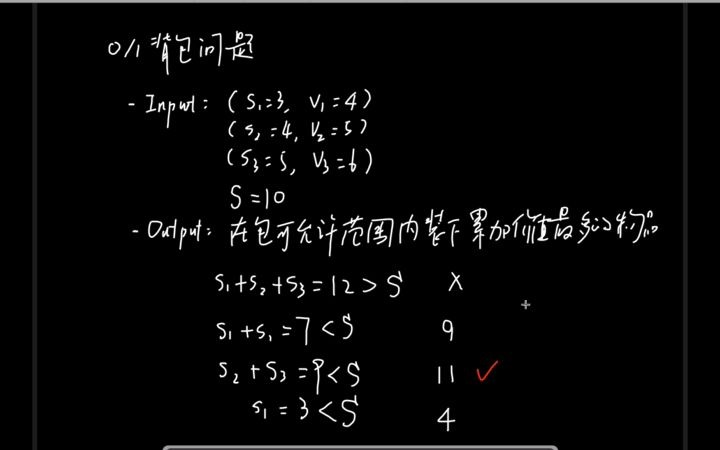 0/1 背包问题
- Input: (S₁=3, V₁=4)
(S₂=4, V₂=5)
(S₃=5, V₃=6)
S=10
- Output: 在包可允许范围内装下累加价值最多的物品
S₁+S₂+S₃=12>S X
S₁+S₁=7<S 9
S₂+S₃=9<S 11 ✓
S₁=3<S 4